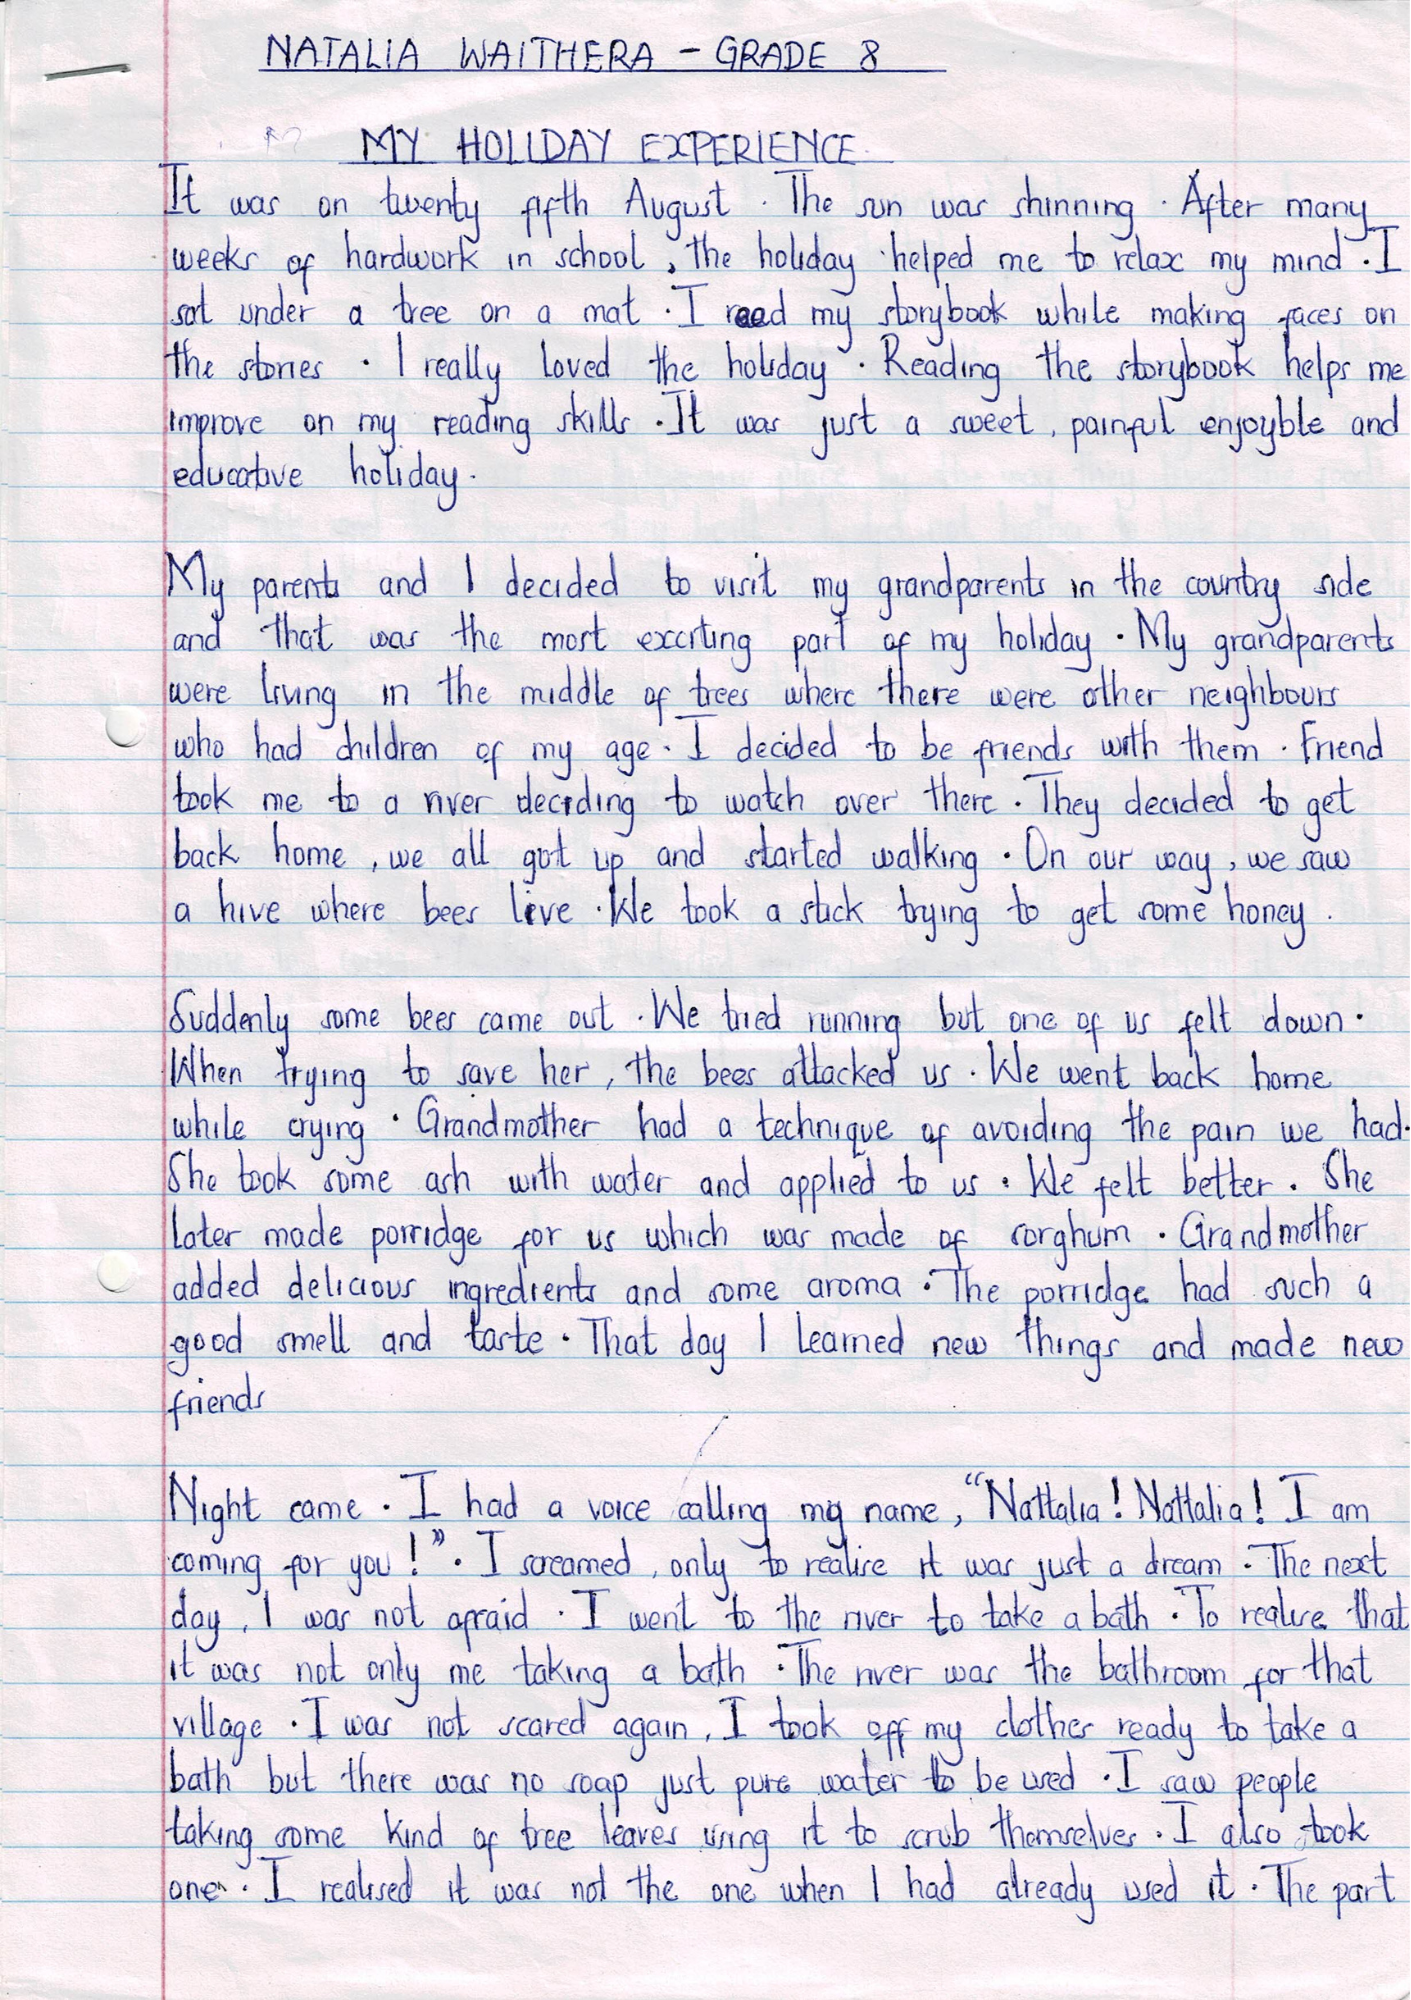 NATALIA WAITHERA - GRADE 8
MY HOLIDAY EXPERIENCE.
It was on twenty fifth August. The sun was shinning. After many
weeks of hardwork in school, the holiday helped me to relax my mind. I
sat under a tree on a mat. I read my storybook while making faces on
the stories. I really loved the holiday. Reading the storybook helps me
improve on my reading skills. It was just a sweet, painful enjoyble and
educative holiday.
My parents and I decided to visit my grandparents in the country side
and that was the most exciting part of my holiday. My grandparents
were living in the middle of trees where there were other neighbours
who had children of my age. I decided to be friends with them. Friend
took me to a river deciding to watch over there. They decided to get
back home, we all got up and started walking. On our way, we saw
a hive where bees live. We took a stick trying to get some honey.
Suddenly some bees came out. We tried running but one of us felt down.
When trying to save her, the bees attacked us. We went back home
while crying. Grandmother had a technique of avoiding the pain we had.
She took some ash with water and applied to us. We felt better. She
later made porridge for us which was made of sorghum. Grandmother
added delicious ingredients and some aroma. The porridge had such a
good smell and taste. That day I learned new things and made new
friends
Night came. I had a voice calling my name, "Nattalia! Nattalia! I am
coming for you!". I screamed, only to realise it was just a dream. The next
day, I was not afraid. I went to the river to take a bath. To realise that
it was not only me taking a bath. The river was the bathroom for that
village. I was not scared again, I took off my clothes ready to take a
bath but there was no soap just pure water to be used. I saw people
taking some kind of tree leaves using it to scrub themselves. I also took
one. I realised it was not the one when I had already used it. The part